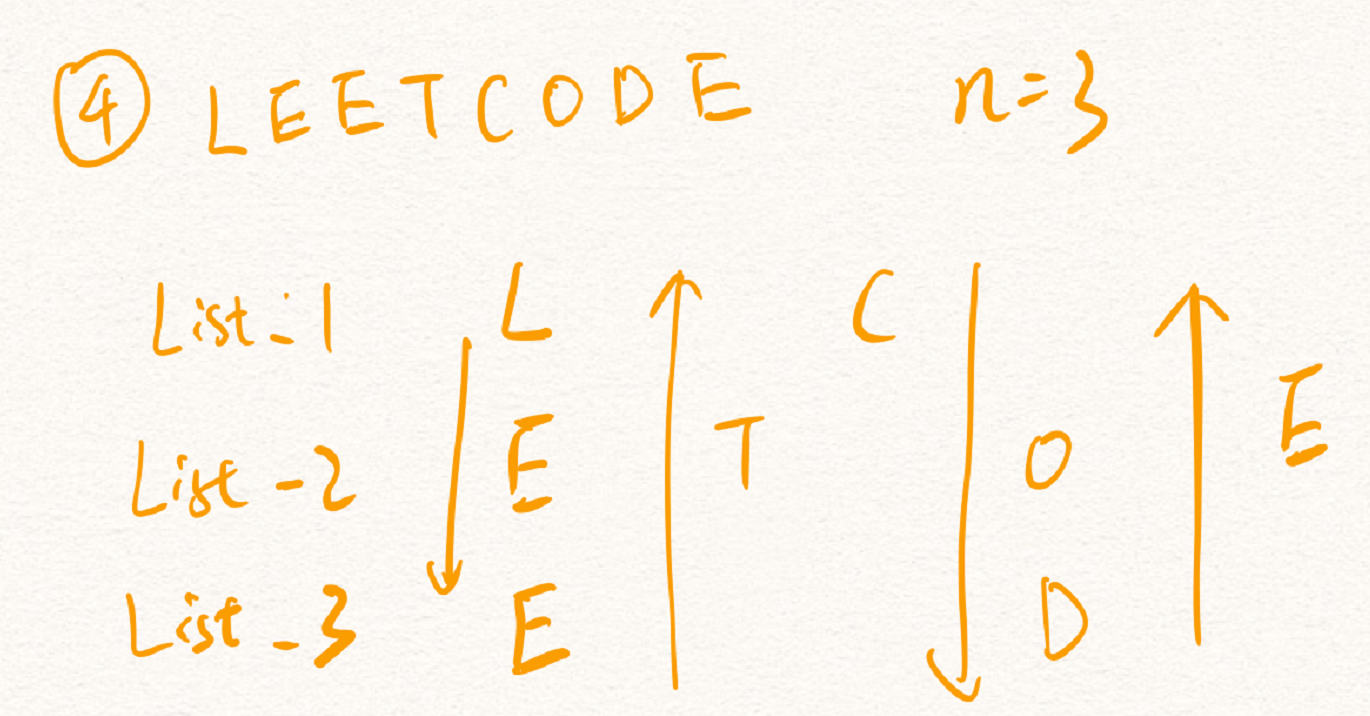 ④ LEETCODE n=3
List-1 L C
List-2 E T O E
List-3 E D